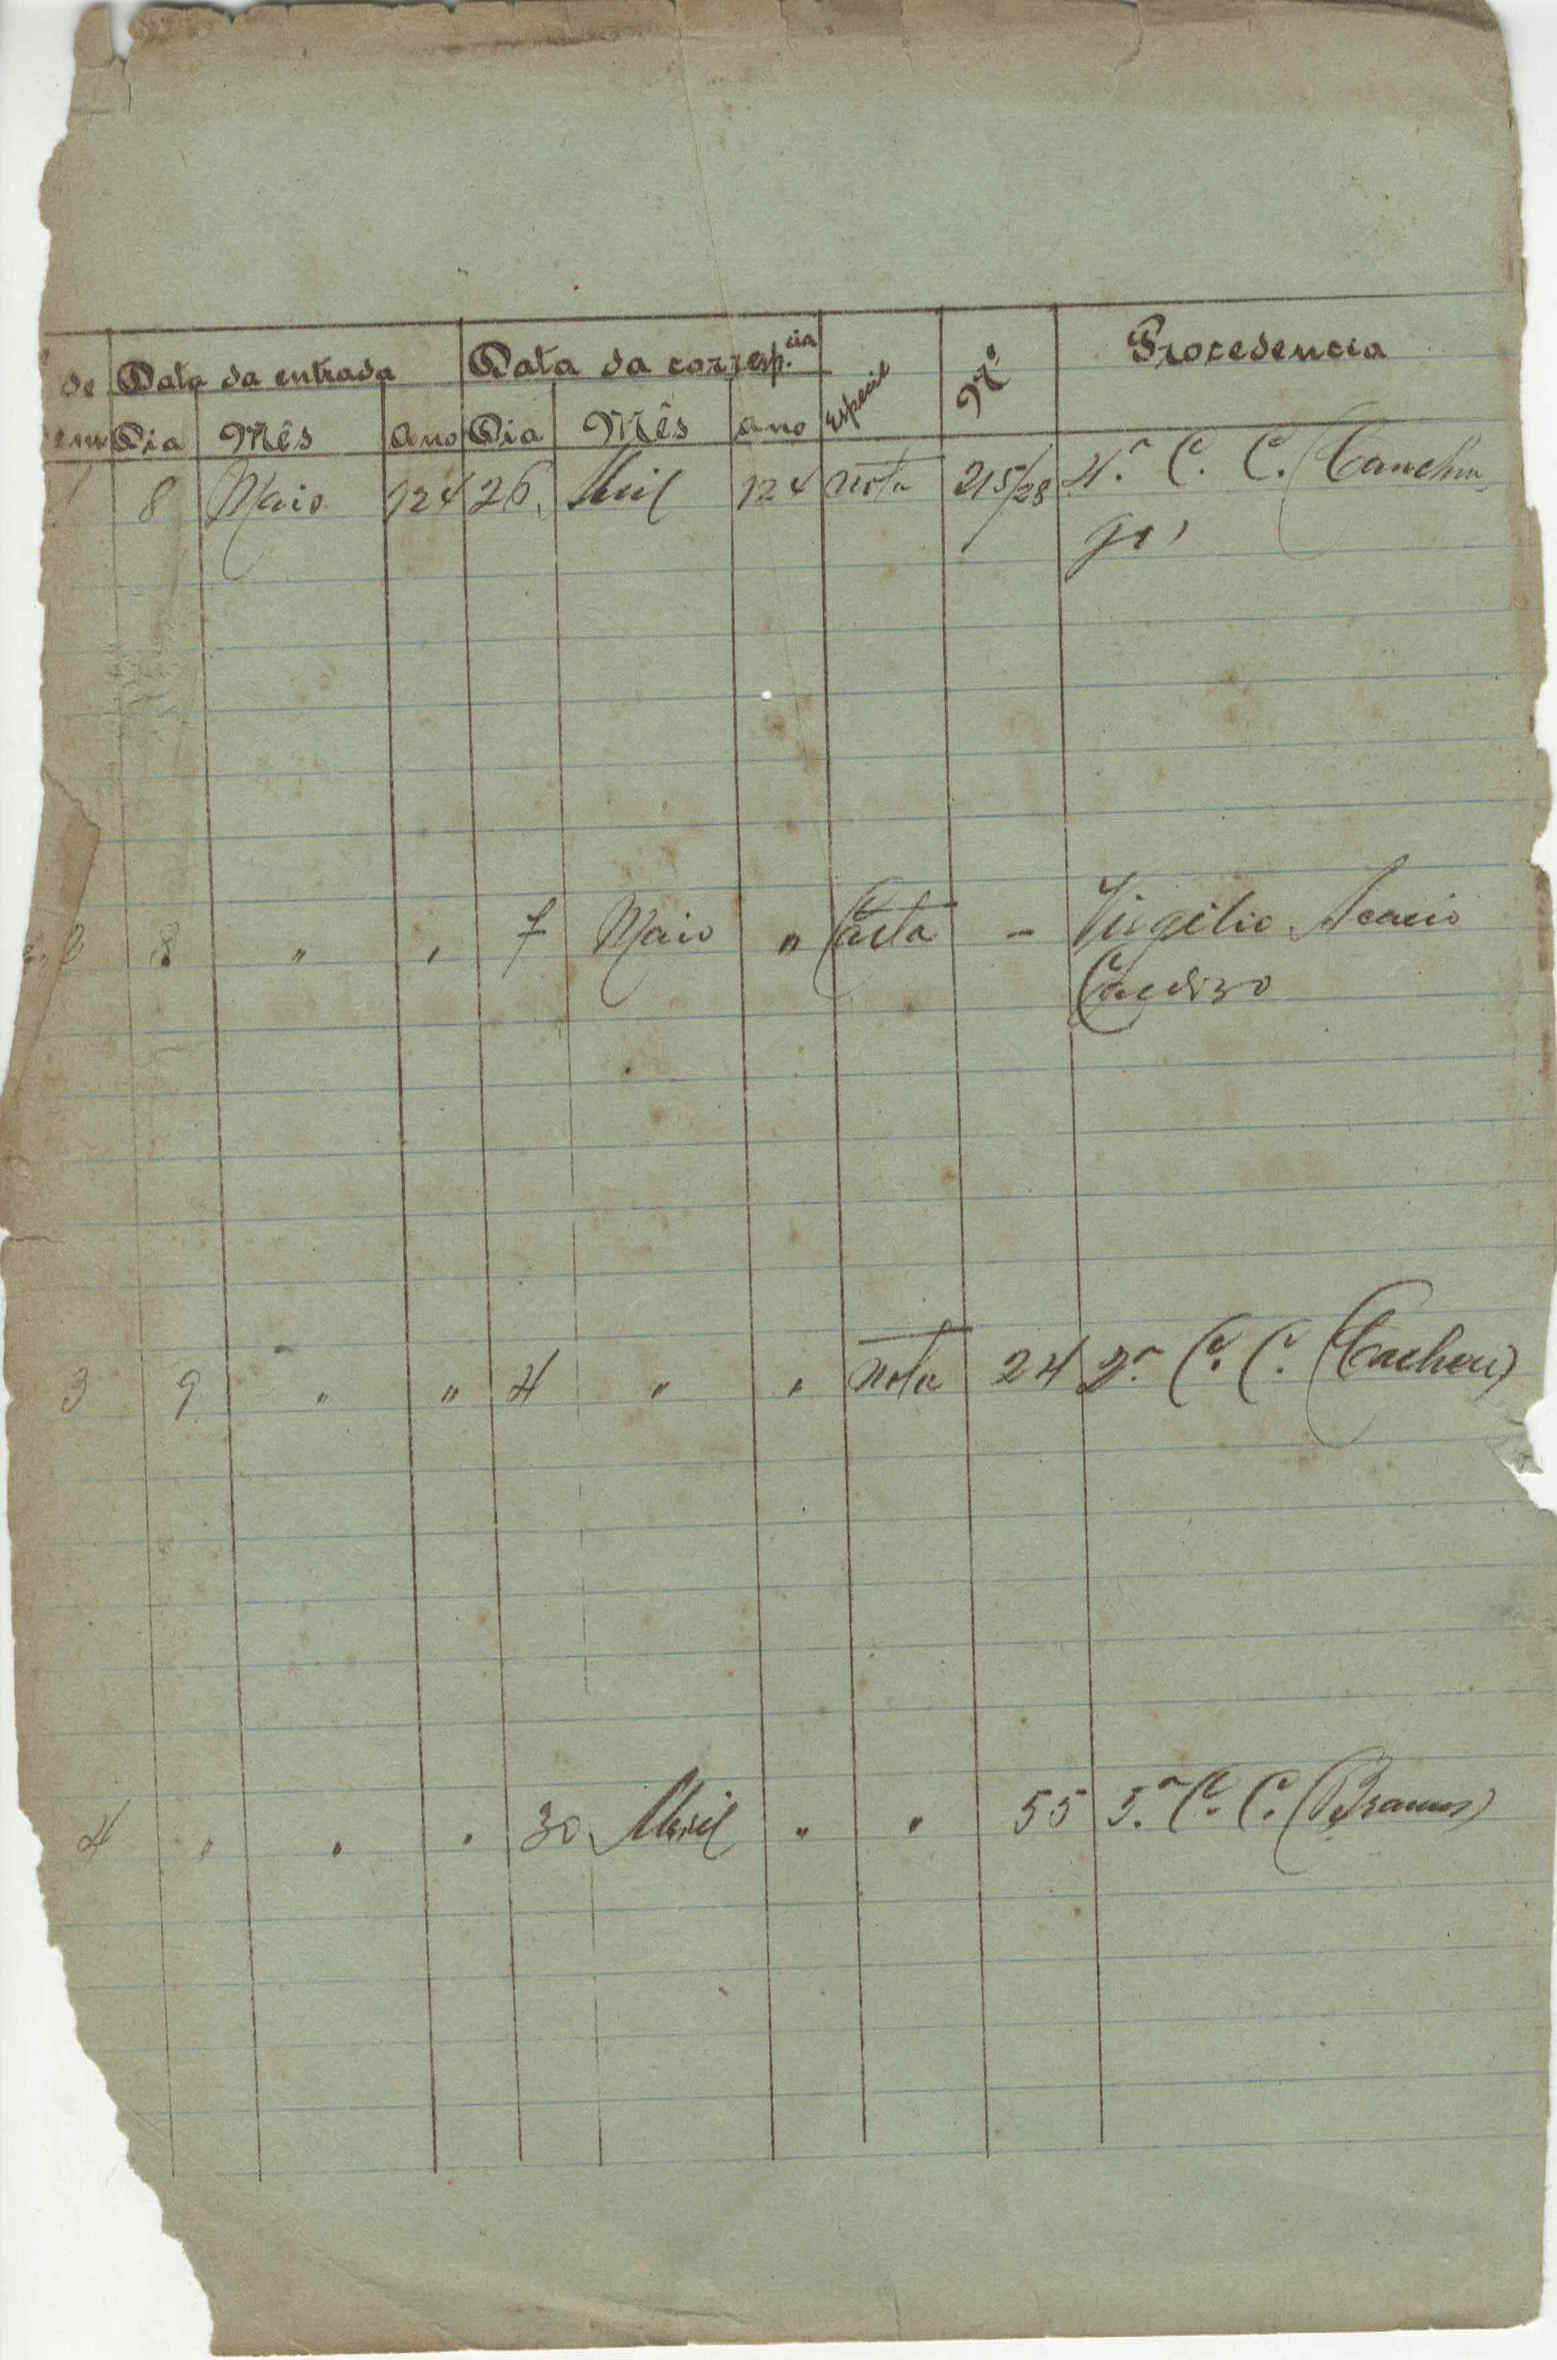 de Data da entrada Data da corresp.cia Especie N.º Procedencia
Dia Mês Ano Dia Mês Ano
1 8 Maio 924 26 Abril 924 nota 215/28 4.ª C. C. (Canchun
go)
2 8 " " 7 Maio " Carta - Virgilio Acacio
Cardozo
3 9 " " 4 " " nota 24 2.ª C. C. (Cacheu)
4 " " " 30 Abril " " 55 5.ª C. C. (Brames)